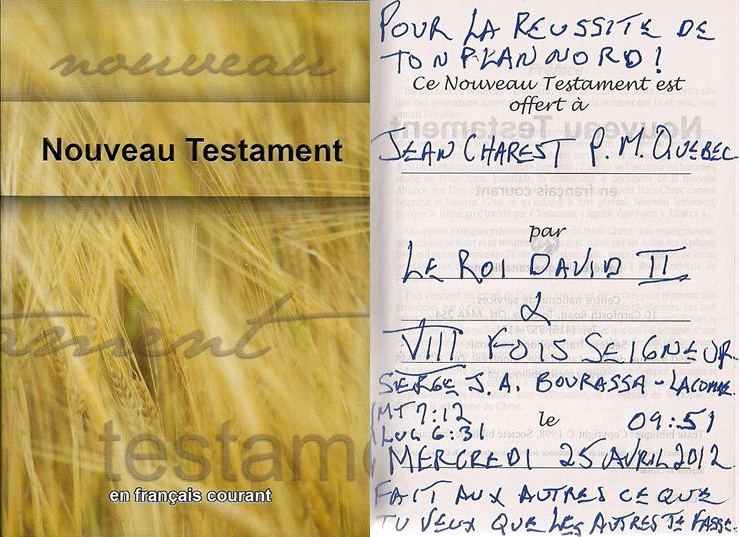 nouveau
Nouveau Testament
tament
testam
en français courant
POUR LA REUSSITE DE
TON PLAN NORD!
Ce Nouveau Testament est
offert à
JEAN CHAREST P.M. QUEBEC.
par
LE ROI DAVID II
&
VIII FOIS SEIGNEUR.
SERGE J.A. BOURASSA-LACOMBE
MT 7:12
LUC 6:31
le
09:51
MERCREDI 25 AVRIL 2012
FAIT AUX AUTRES CE QUE
TU VEUX QUE LES AUTRES TE FASSE.